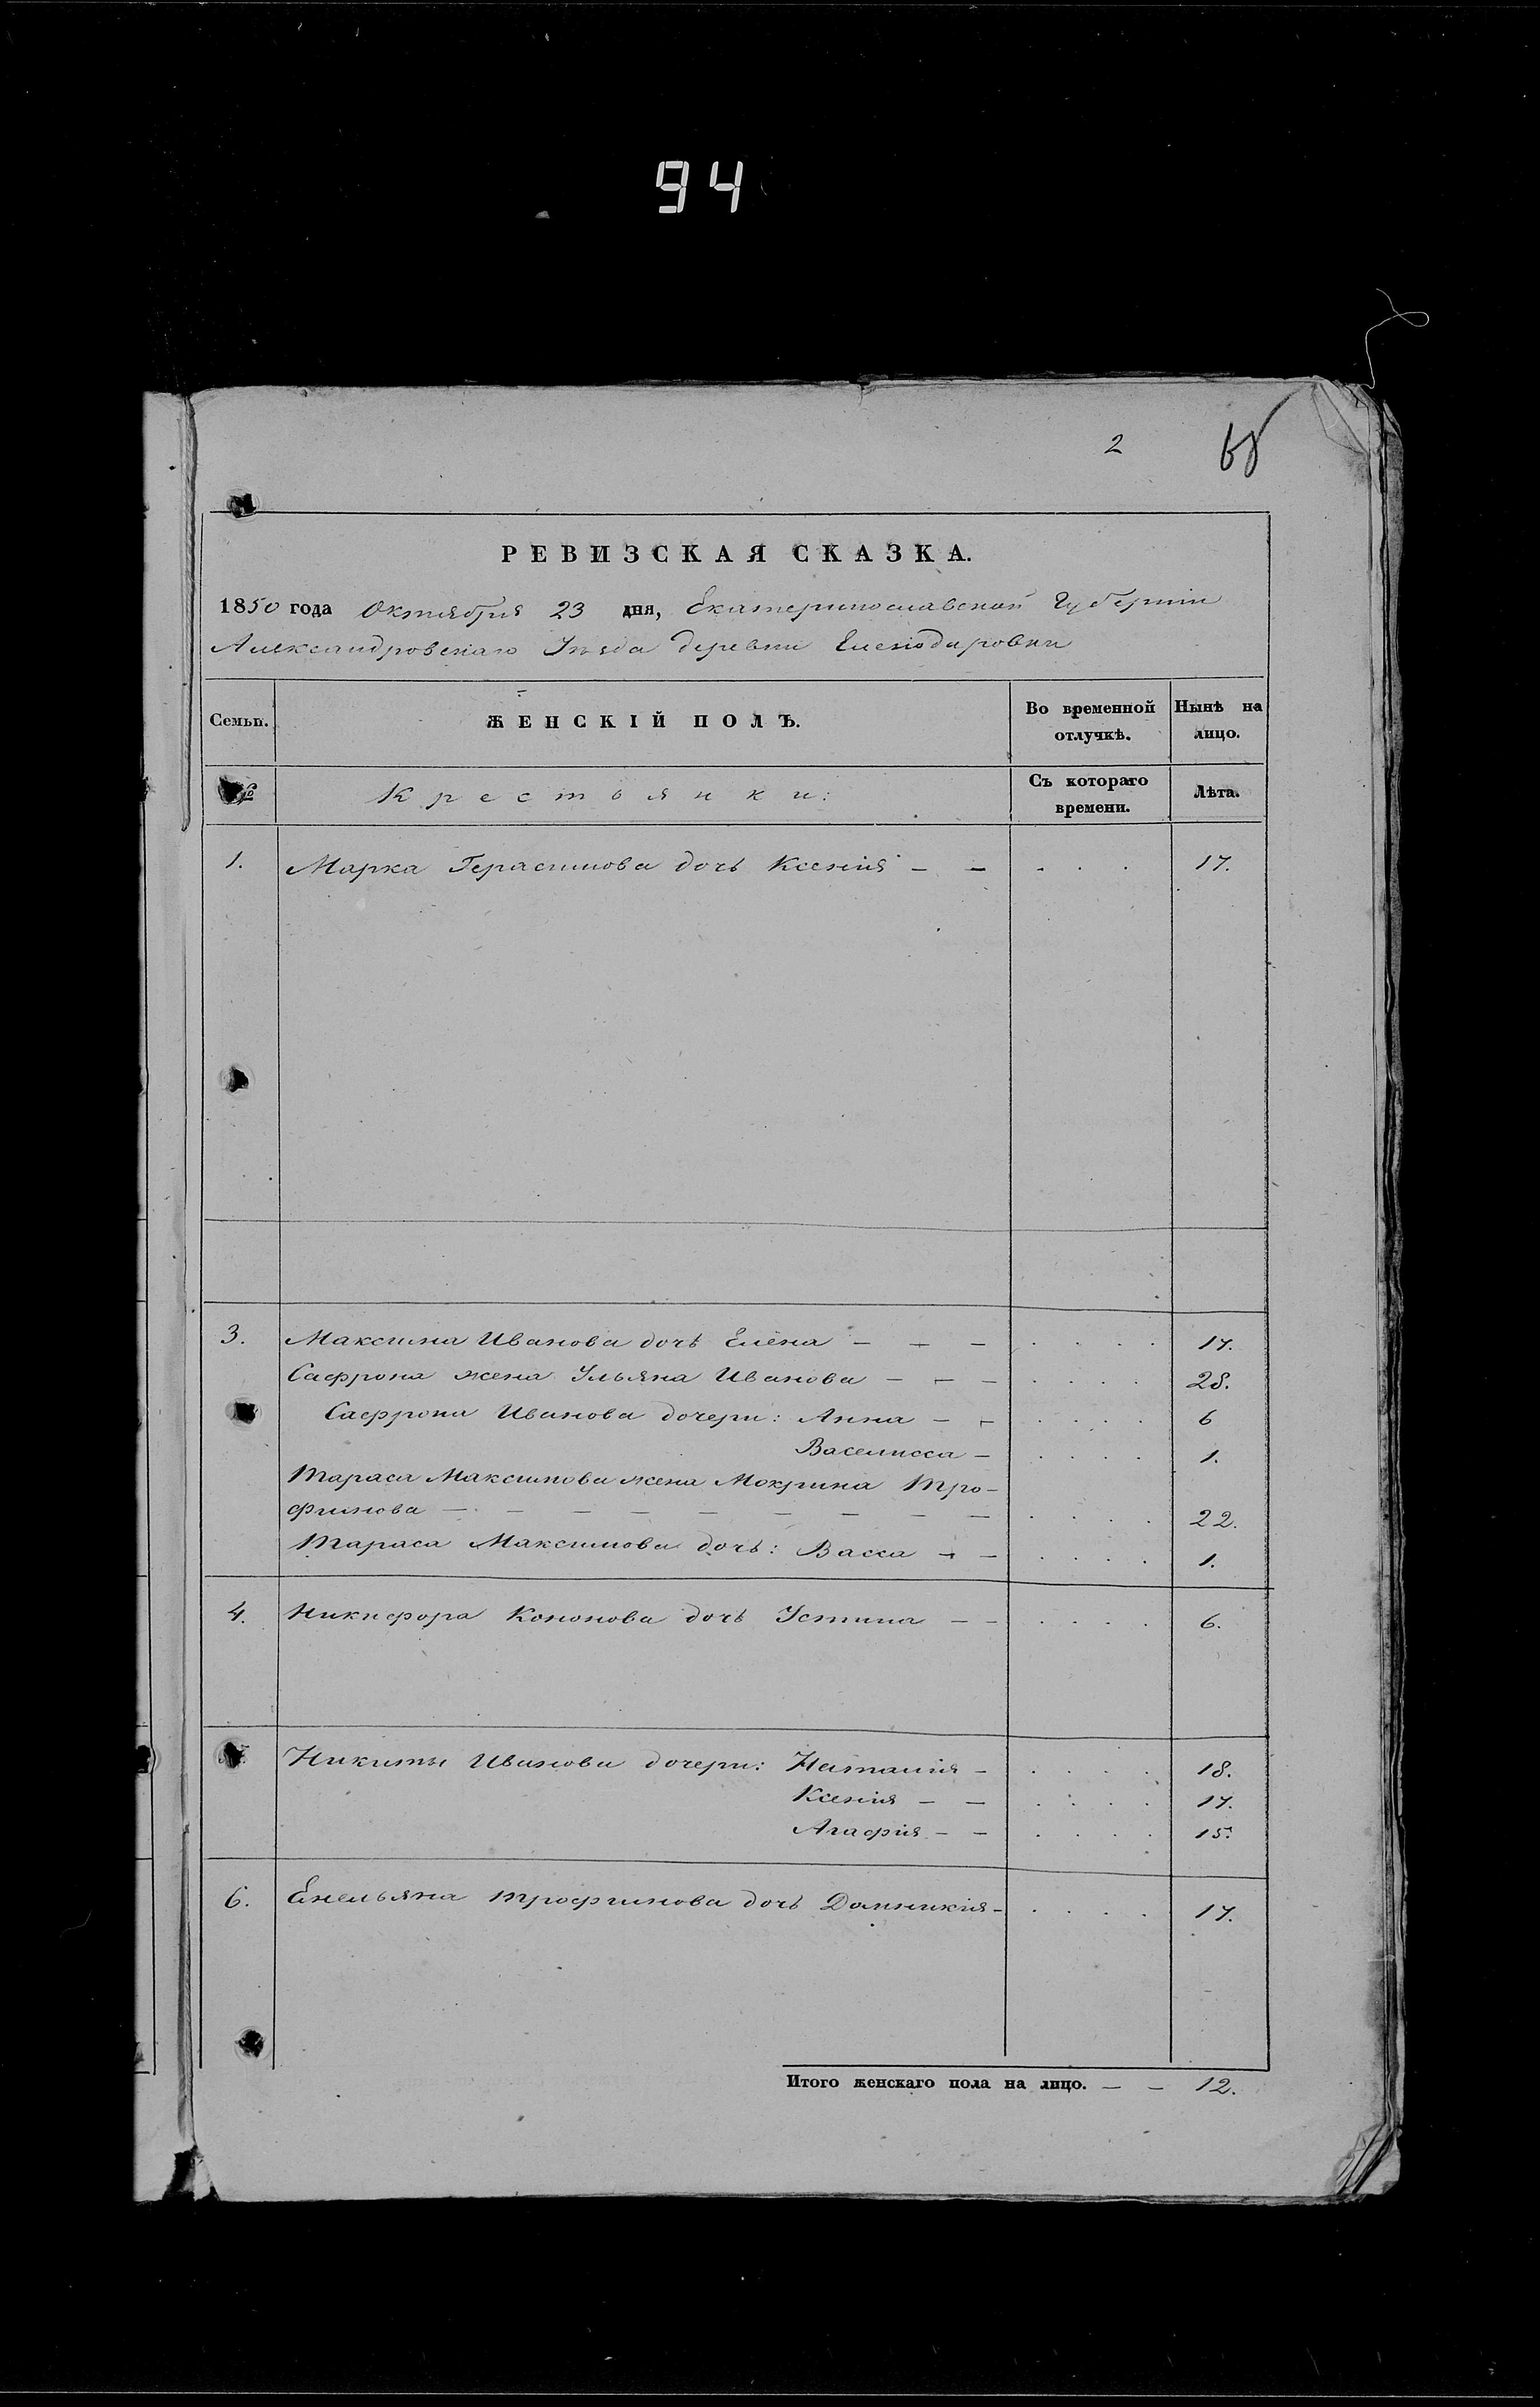 94
2
РЕВИЗСКАЯ СКАЗКА.
1850 года Октября 23 дня, Екатеринославской Губерніи
Александровскаго Уѣзда деревни
Семьи. ЖЕНСКІЙ ПОЛЪ. Во временной отлучкѣ. Нынѣ на лицо.
№ Крестьянки: Съ котораго времени. Лѣта.
1. Марка Герасимова дочь Ксенія — — . . . 17.
3. Максима Иванова дочь Елена — — — . . . . 17.
Сафрона жена Ульяна Иванова — — — . . . . 28.
Сафрона Иванова дочери: Анна — — . . . . 6
Василисса — . . . . 1.
Тараса Максимова жена Мокрина Тро-
фимова — — — — — — — — — . . . . 22.
Тараса Максимова дочь: Васса — — . . . . 1.
4. Никифора Кононова дочь Устина — — . . . . 6.
5. Никиты Иванова дочери: Наталія — . . . . 18.
Ксенія — — . . . . 17.
Агафія — — . . . . 15.
6. Емельяна Трофимова дочь Домникія — . . . . 17.
Итого женскаго пола на лицо. — — 12.